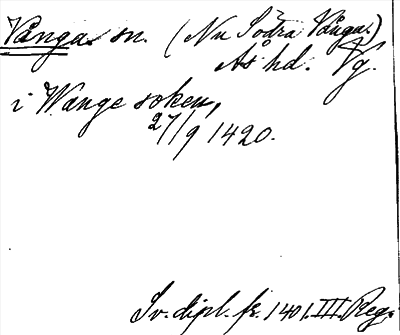 Vånga sn. (Nu Södra Vånga.)
Ås hd. Vg.
i Wange soken,
27/9 1420.
Sv. dipl. fr. 1401. III. Reg.